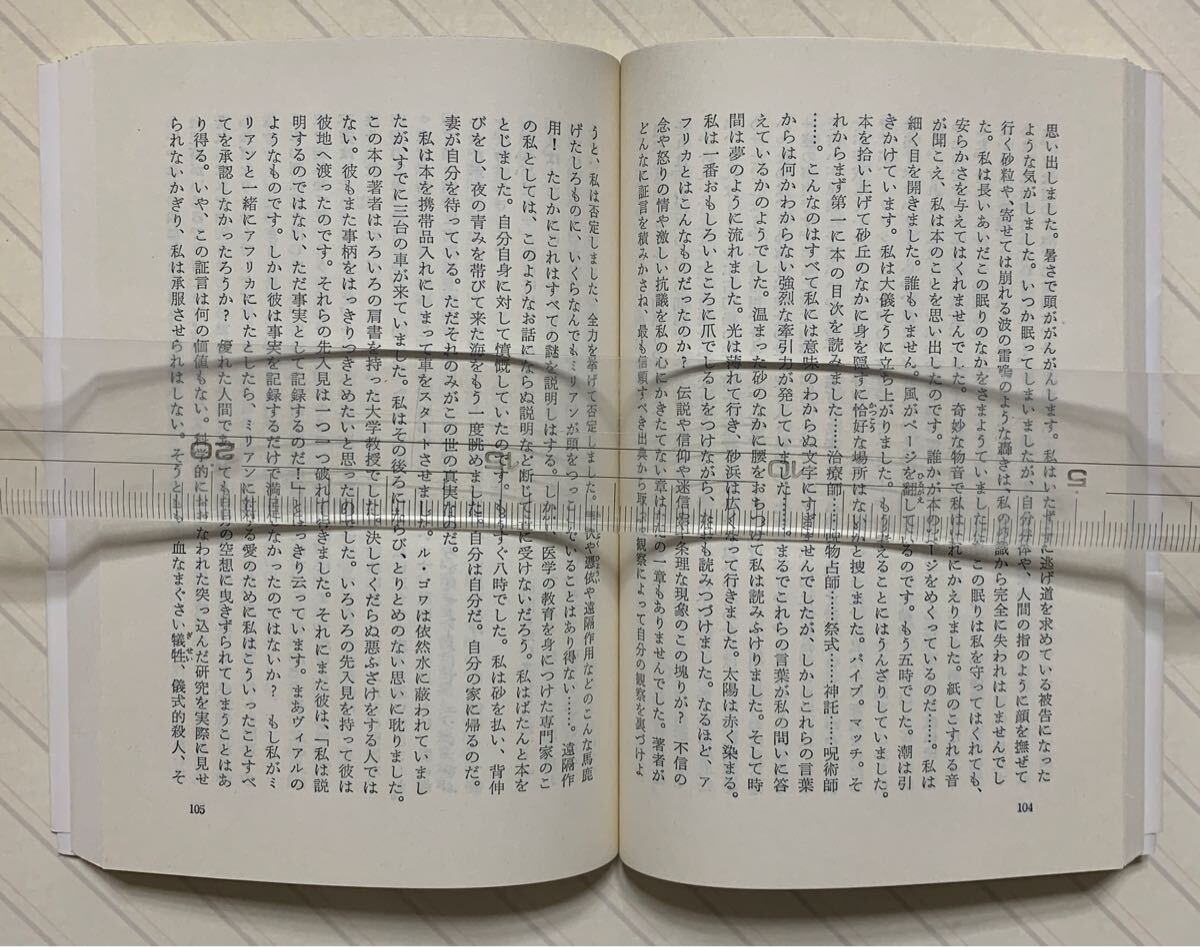 思い出しました。暑さで頭ががんがんします。私はいたずらに逃げ道を求めている被告になった
ような気がしました。いつか眠ってしまいましたが、自分の体や、人間の指のように顔を撫ぜて
行く砂粒や、寄せては崩れる波の雷鳴のような轟きは、私の意識から完全に失われはしませんでし
た。私は長いあいだこの眠りのなかをさまよっていました。この眠りは私を守ってはくれても、
安らかさを与えてはくれませんでした。奇妙な物音で私はわれにかえりました。紙のこすれる音
が聞こえ、私は本のことを思い出したのです。誰かが本のページをめくっているのだ……。私は
細く目を開きました。誰もいません。風がページを翻しているのです。もう五時でした。潮は引
きかけています。私は大儀そうに立ち上がりました。もう考えることにはうんざりしていました。
本を拾い上げて砂丘のなかに身を隠すに恰好な場所はないかと捜しました。パイプ。マッチ。そ
れからまず第一に本の目次を読みました……治療師……呪物占師……祭式……神託……呪術師
……。こんなのはすべて私には意味のわからぬ文字にすぎませんでしたが、しかしこれらの言葉
からは何かわからない強烈な牽引力が発していました……。まるでこれらの言葉が私の問いに答
えているかのようでした。温まった砂のなかに腰をおちつけて私は読みふけりました。そして時
間は夢のように流れました。光は薄れて行き、砂浜は広くなって行きました。太陽は赤く染まる。
私は一番おもしろいところに爪でしるしをつけながら、なおも読みつづけました。なるほど、ア
フリカとはこんなものだったのか？　伝説や信仰や迷信や不条理な現象のこの塊りが？　不信の
念や怒りの情や激しい抗議を私の心にかきたてない章はただの一章もありませんでした。著者が
どんなに証言を積みかさね、最も信頼すべき出典から取材し観察によって自分の観察を裏づけよ
104
うと、私は否定しました、全力を挙げて否定しました。呪や憑依や遠隔作用などのこんな馬鹿
げたしろものに、いくらなんでもミリアンが頭をつっこんでいることはあり得ない……。遠隔作
用！　たしかにこれはすべての謎を説明しはする。しかし、医学の教育を身につけた専門家のこ
の私としては、このようなお話にならぬ説明など断じて信に受けないだろう。私はぱたんと本を
とじました。自分自身に対して憤慨していたのです。もうすぐ八時でした。私は砂を払い、背伸
びをし、夜の青みを帯びて来た海をもう一度眺めました。自分は自分だ。自分の家に帰るのだ。
妻が自分を待っている。ただそれのみがこの世の真実なのだ。
　私は本を携帯品入れにしまって車をスタートさせました。ル・ゴワは依然水に蔽われていまし
たが、すでに三台の車が来ていました。私はその後ろにならび、とりとめのない思いに耽りました。
この本の著者はいろいろの肩書を持った大学教授でした。決してくだらぬ悪ふざけをする人では
ない。彼もまた事柄をはっきりつきとめたいと思ったのでした。いろいろの先入見を持って彼は
彼地へ渡ったのです。それらの先入見は一つ一つ破れて行きました。それにまた彼は、「私は説
明するのではない、ただ事実として記録するのだ！」とはっきり云っています。まあヴィアルの
ようなものです。しかし彼は事実を記録するだけで満足でなかったのではないか？　もし私がミ
リアンと一緒にアフリカにいたとしたら、ミリアンに対する愛のために私はこういったことすべ
てを承認しなかったろうか？　優れた人間であっても自分の空想に曳きずられてしまうことはあ
り得る。いや、この証言は何の価値もない。科学的におこなわれた突っ込んだ研究を実際に見せ
られないかぎり、私は承服させられはしない。そうとも、血なまぐさい犠牲、儀式的殺人、そ
105
5
10
15
20